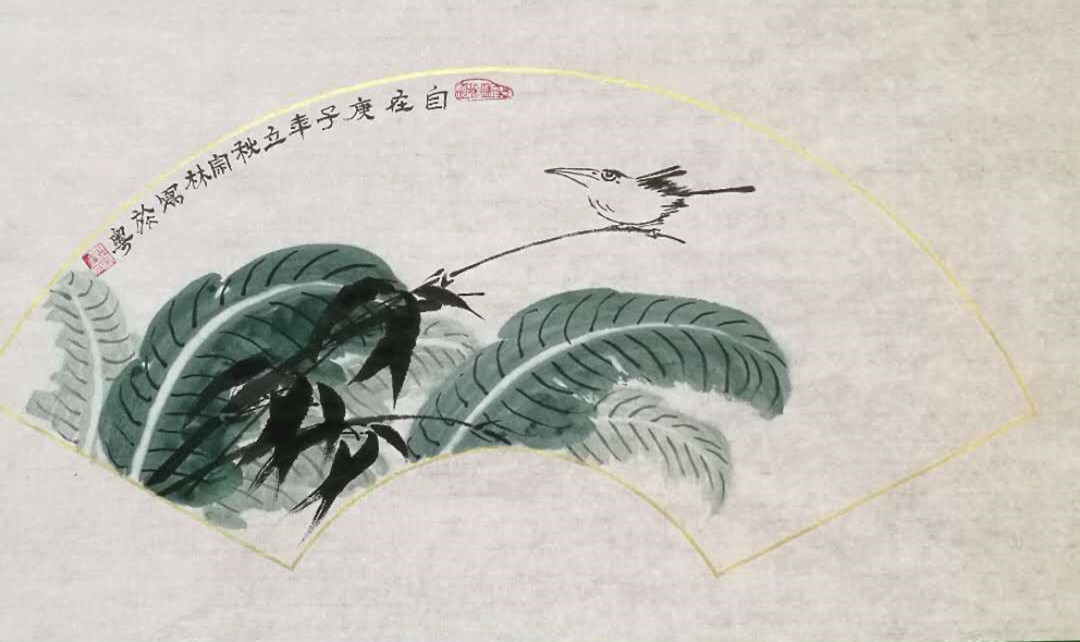 自在庚子年立秋開林寫於粵